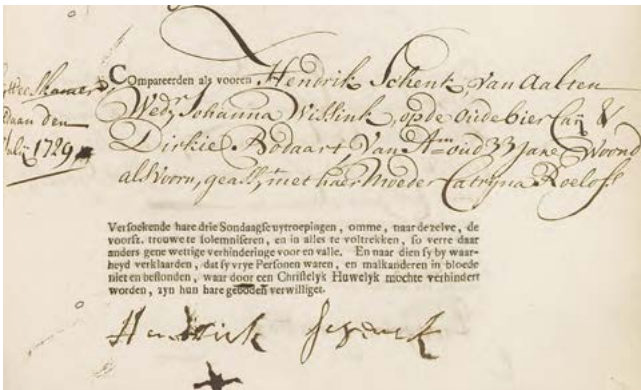 Compareerden als vooren Hendrik Schenk van Aalten
Wedr Johanna Wissink, opde oude bier Caij &
Dirkie Bodaart, van Am oud 33 Jare, Woond
als Voorn, geasst met haer Moeder Catryna Roelofs
Weeskamer
daan den
1729
Versoekende hare drie Sondaagse uytroepingen, omme, naar dezelve, de
voorsz. trouwe te solemniseren, en in alles te voltrekken, so verre daar
anders gene wettige verhinderinge voor en valle. En naar dien sy by waar-
heyd verklaarden, dat sy vrye Personen waren, en malkanderen in bloede
niet en bestonden, waar door een Christelyk Huwelyk mochte verhindert
worden, zyn hun hare geboden verwilliget.
Hendrick schenck